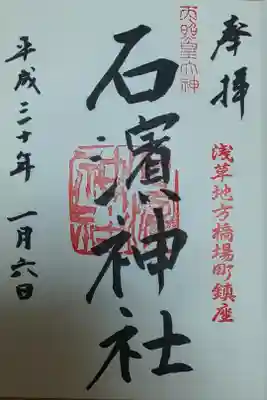 奉拝
浅草地方橋場町鎮座
天照皇大神
石濱神社
平成三十年
一月六日